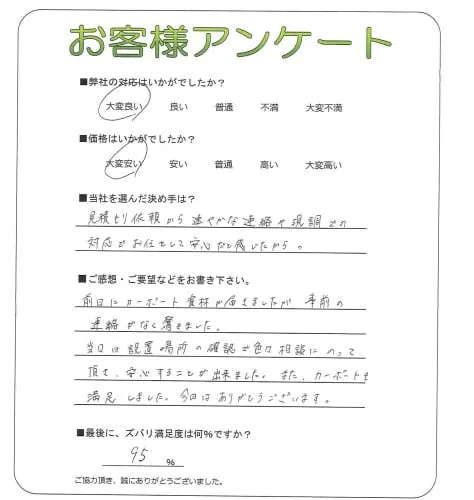 お客様アンケート
■弊社の対応はいかがでしたか?
大変良い 良い 普通 不満 大変不満
■価格はいかがでしたか?
大変安い 安い 普通 高い 大変高い
■当社を選んだ決め手は?
見積もり依頼から速やかな連絡や現調での
対応がお任せして安心だと感じたから。
■ご感想・ご要望などをお書き下さい。
前日にカーポート資材が届きましたが事前の
連絡がなく驚きました。
当日は設置場所の確認で色々相談にのって
頂き、安心することが出来ました。また、カーポートも
満足しました。今回はありがとうございます。
■最後に、ズバリ満足度は何%ですか?
95 %
ご協力頂き、誠にありがとうございました。